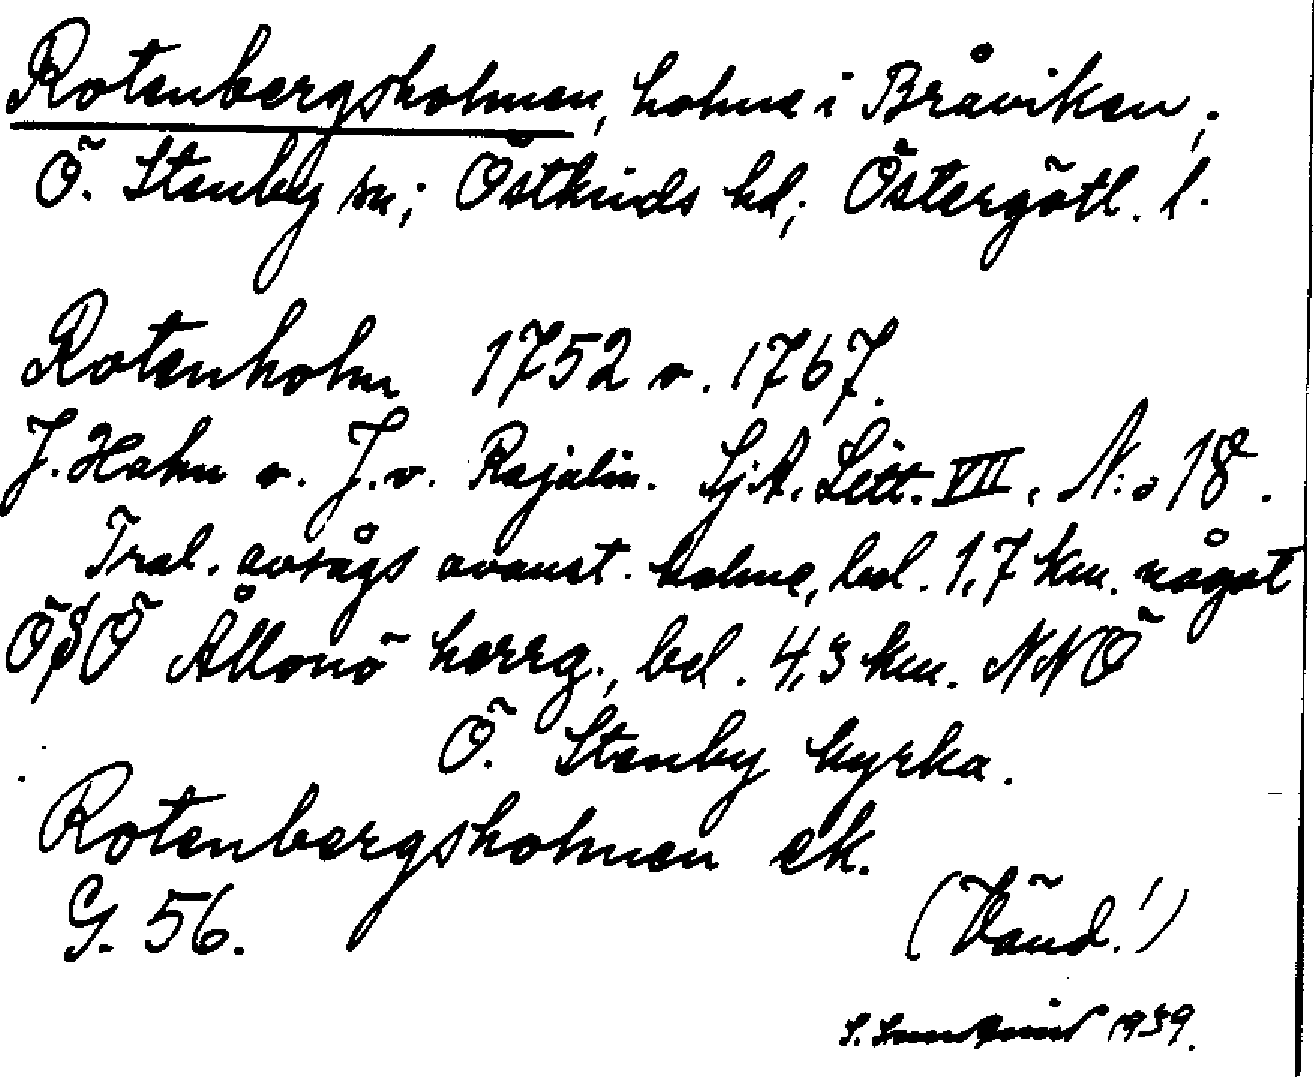 Rotenbergsholmen, holme i Bråviken;
Ö. Stenby sn; Östkinds hd; Östergötl. l.
Rotenholm 1752 o. 1767.
J. Hahn o. J. v. Rajalin. SjA. Litt. VII, N:o 18.
Trol. avsågs ovanst. holme, bel. 1,7 km. något
ÖSÖ Ållonö herrg., bel. 4,3 km. NNÖ
Ö. Stenby kyrka.
Rotenbergsholmen ek.
G. 56.
(Vänd!)
1939.